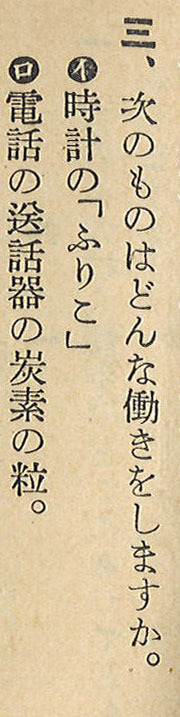 三、次のものはどんな働きをしますか。
㋑時計の「ふりこ」
㋺電話の送話器の炭素の粒。